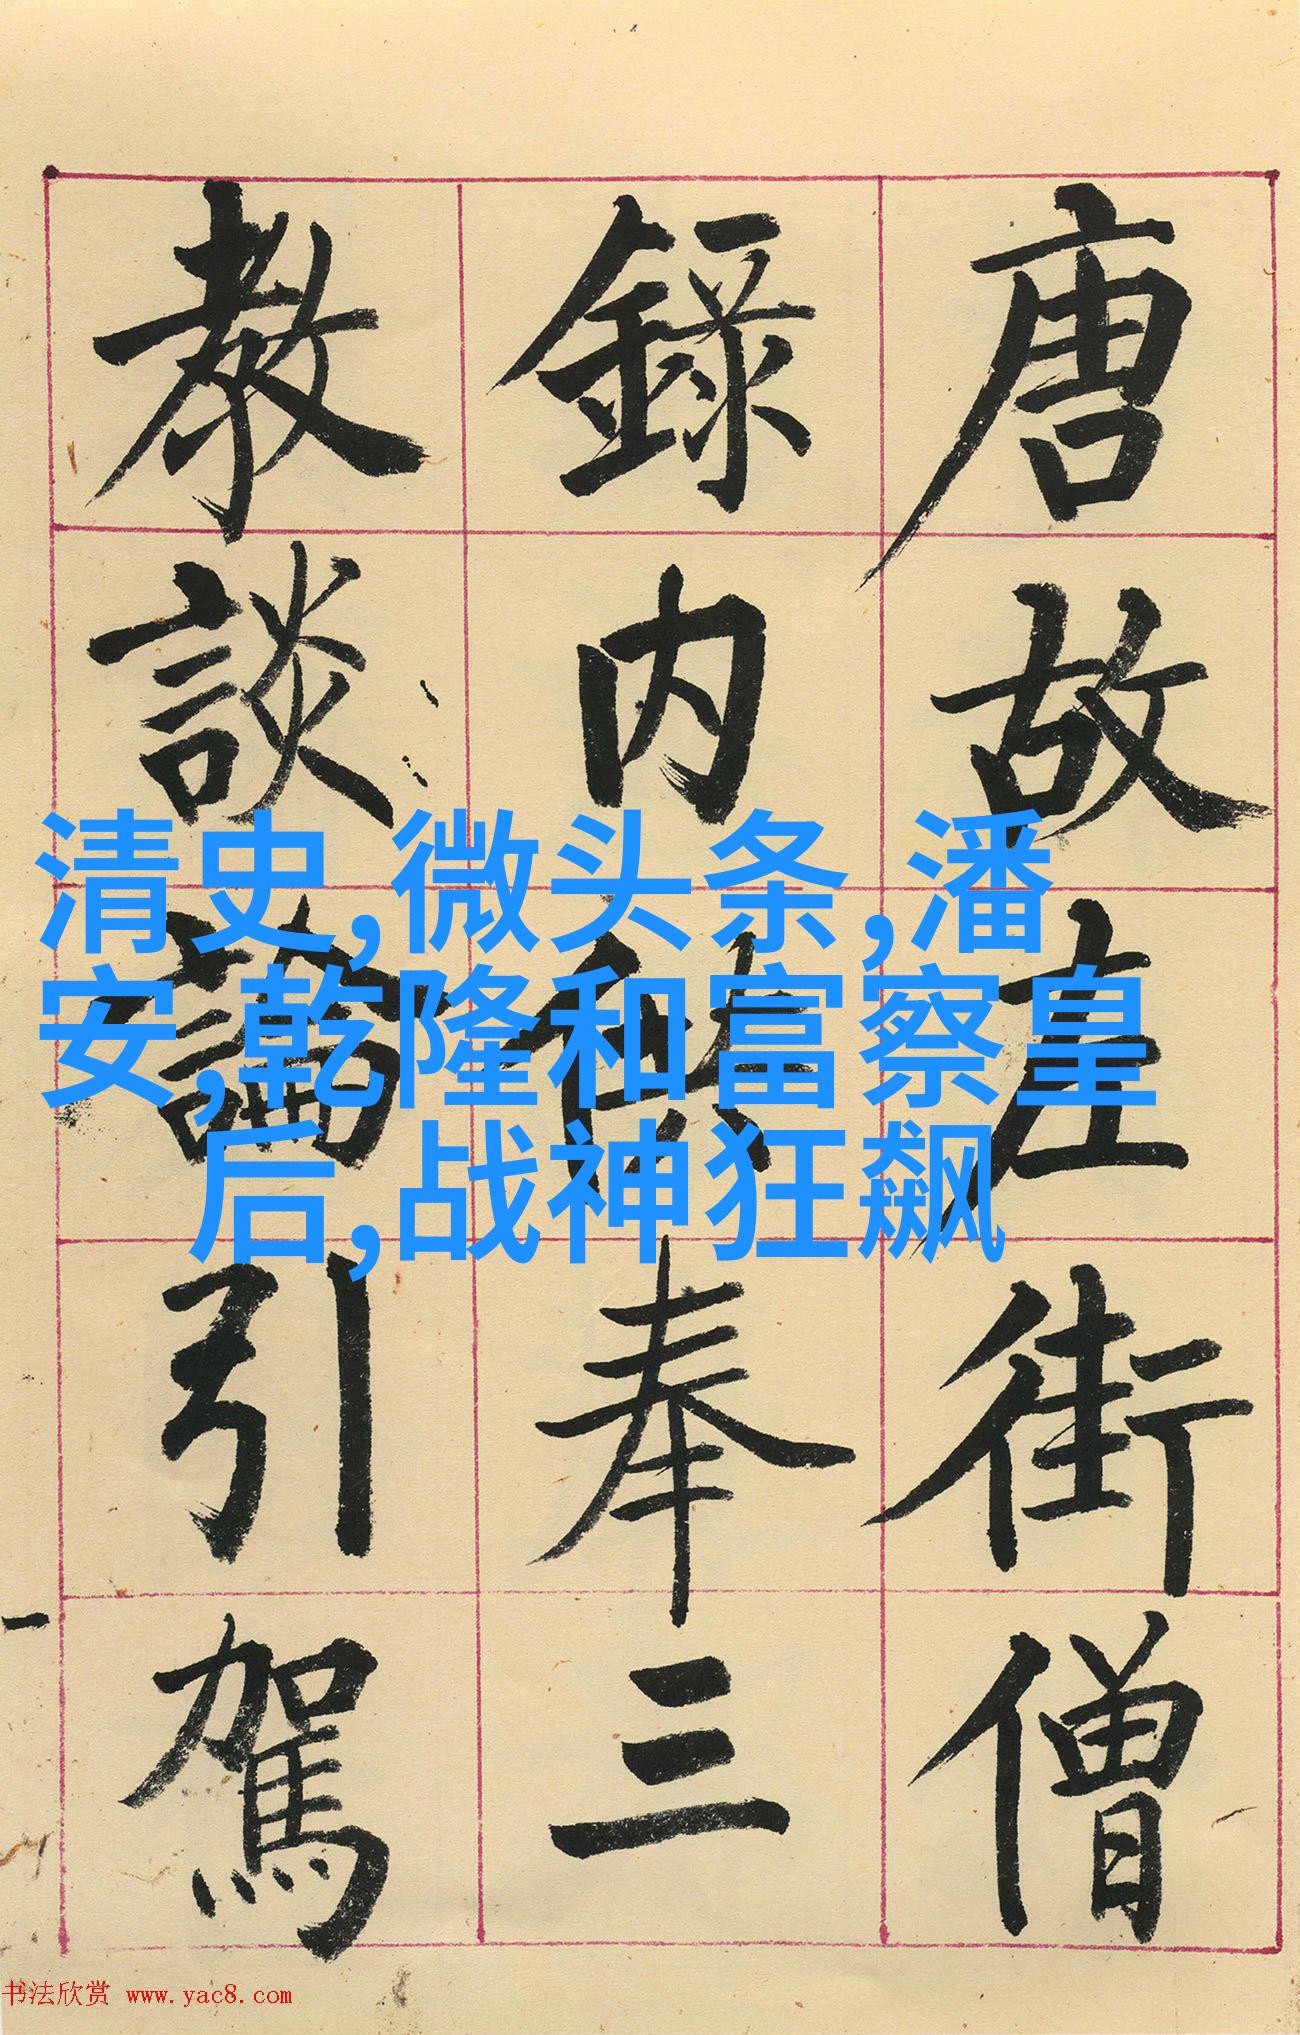 唐故左街僧
錄內供奉三
教談論引駕
清史,微头条,潘
安,乾隆和富察皇
后,战神狂飙
书法欣赏 www.yac8.com